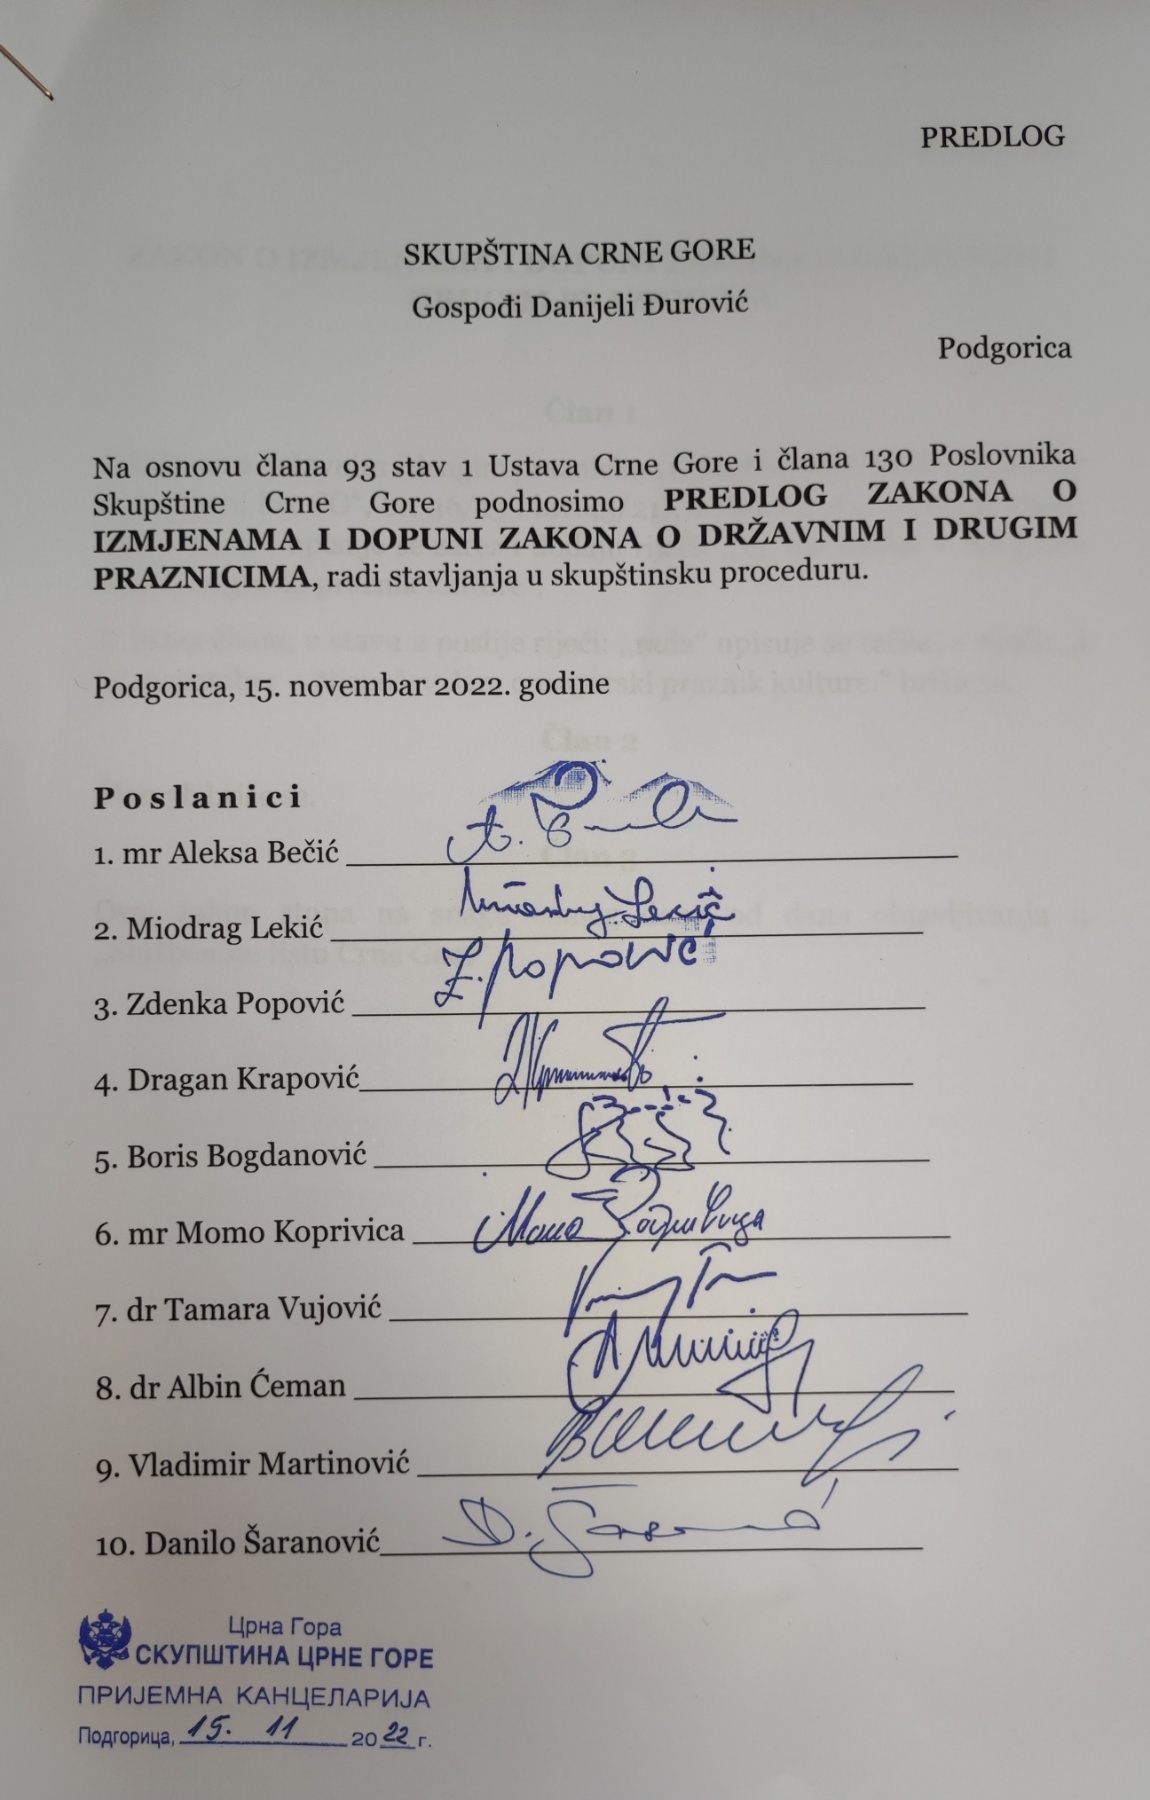 PREDLOG
SKUPŠTINA CRNE GORE
Gospođi Danijeli Đurović
Podgorica
Na osnovu člana 93 stav 1 Ustava Crne Gore i člana 130 Poslovnika
Skupštine Crne Gore podnosimo PREDLOG ZAKONA O
IZMJENAMA I DOPUNI ZAKONA O DRŽAVNIM I DRUGIM
PRAZNICIMA, radi stavljanja u skupštinsku proceduru.
Podgorica, 15. novembar 2022. godine
Poslanici
1. mr Aleksa Bečić
2. Miodrag Lekić
3. Zdenka Popović Z. Popović
4. Dragan Krapović
5. Boris Bogdanović
6. mr Momo Koprivica
7. dr Tamara Vujović
8. dr Albin Ćeman
9. Vladimir Martinović
10. Danilo Šaranović
Црна Гора
СКУПШТИНА ЦРНЕ ГОРЕ
ПРИЈЕМНА КАНЦЕЛАРИЈА
Подгорица, 15. 11 2022 г.